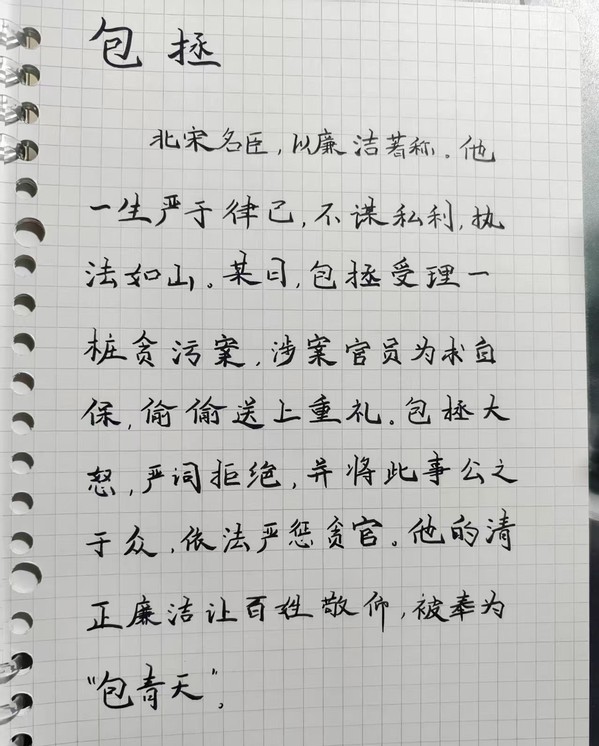 包拯
北宋名臣，以廉洁著称。他
一生严于律己，不谋私利，执
法如山。某日，包拯受理一
桩贪污案，涉案官员为求自
保，偷偷送上重礼。包拯大
怒，严词拒绝，并将此事公之
于众，依法严惩贪官。他的清
正廉洁让百姓敬仰，被奉为
“包青天”。